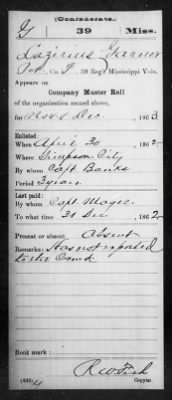 (Confederate.)
G 39 Miss.
Lazirius Garner
Pvt Co. I, 39 Reg't Mississippi Vols.
Appears on
Company Muster Roll
of the organization named above,
for Nov & Dec, 1863
Enlisted:
When April 30, 1862
Where Simpson City
By whom Capt Banks
Period 3 years
Last paid:
By whom Capt. Magee
To what time 31 Dec, 1862
Present or absent Absent
Remarks: Has not reported
to the Comd
Book mark:
(642)
Copyist.